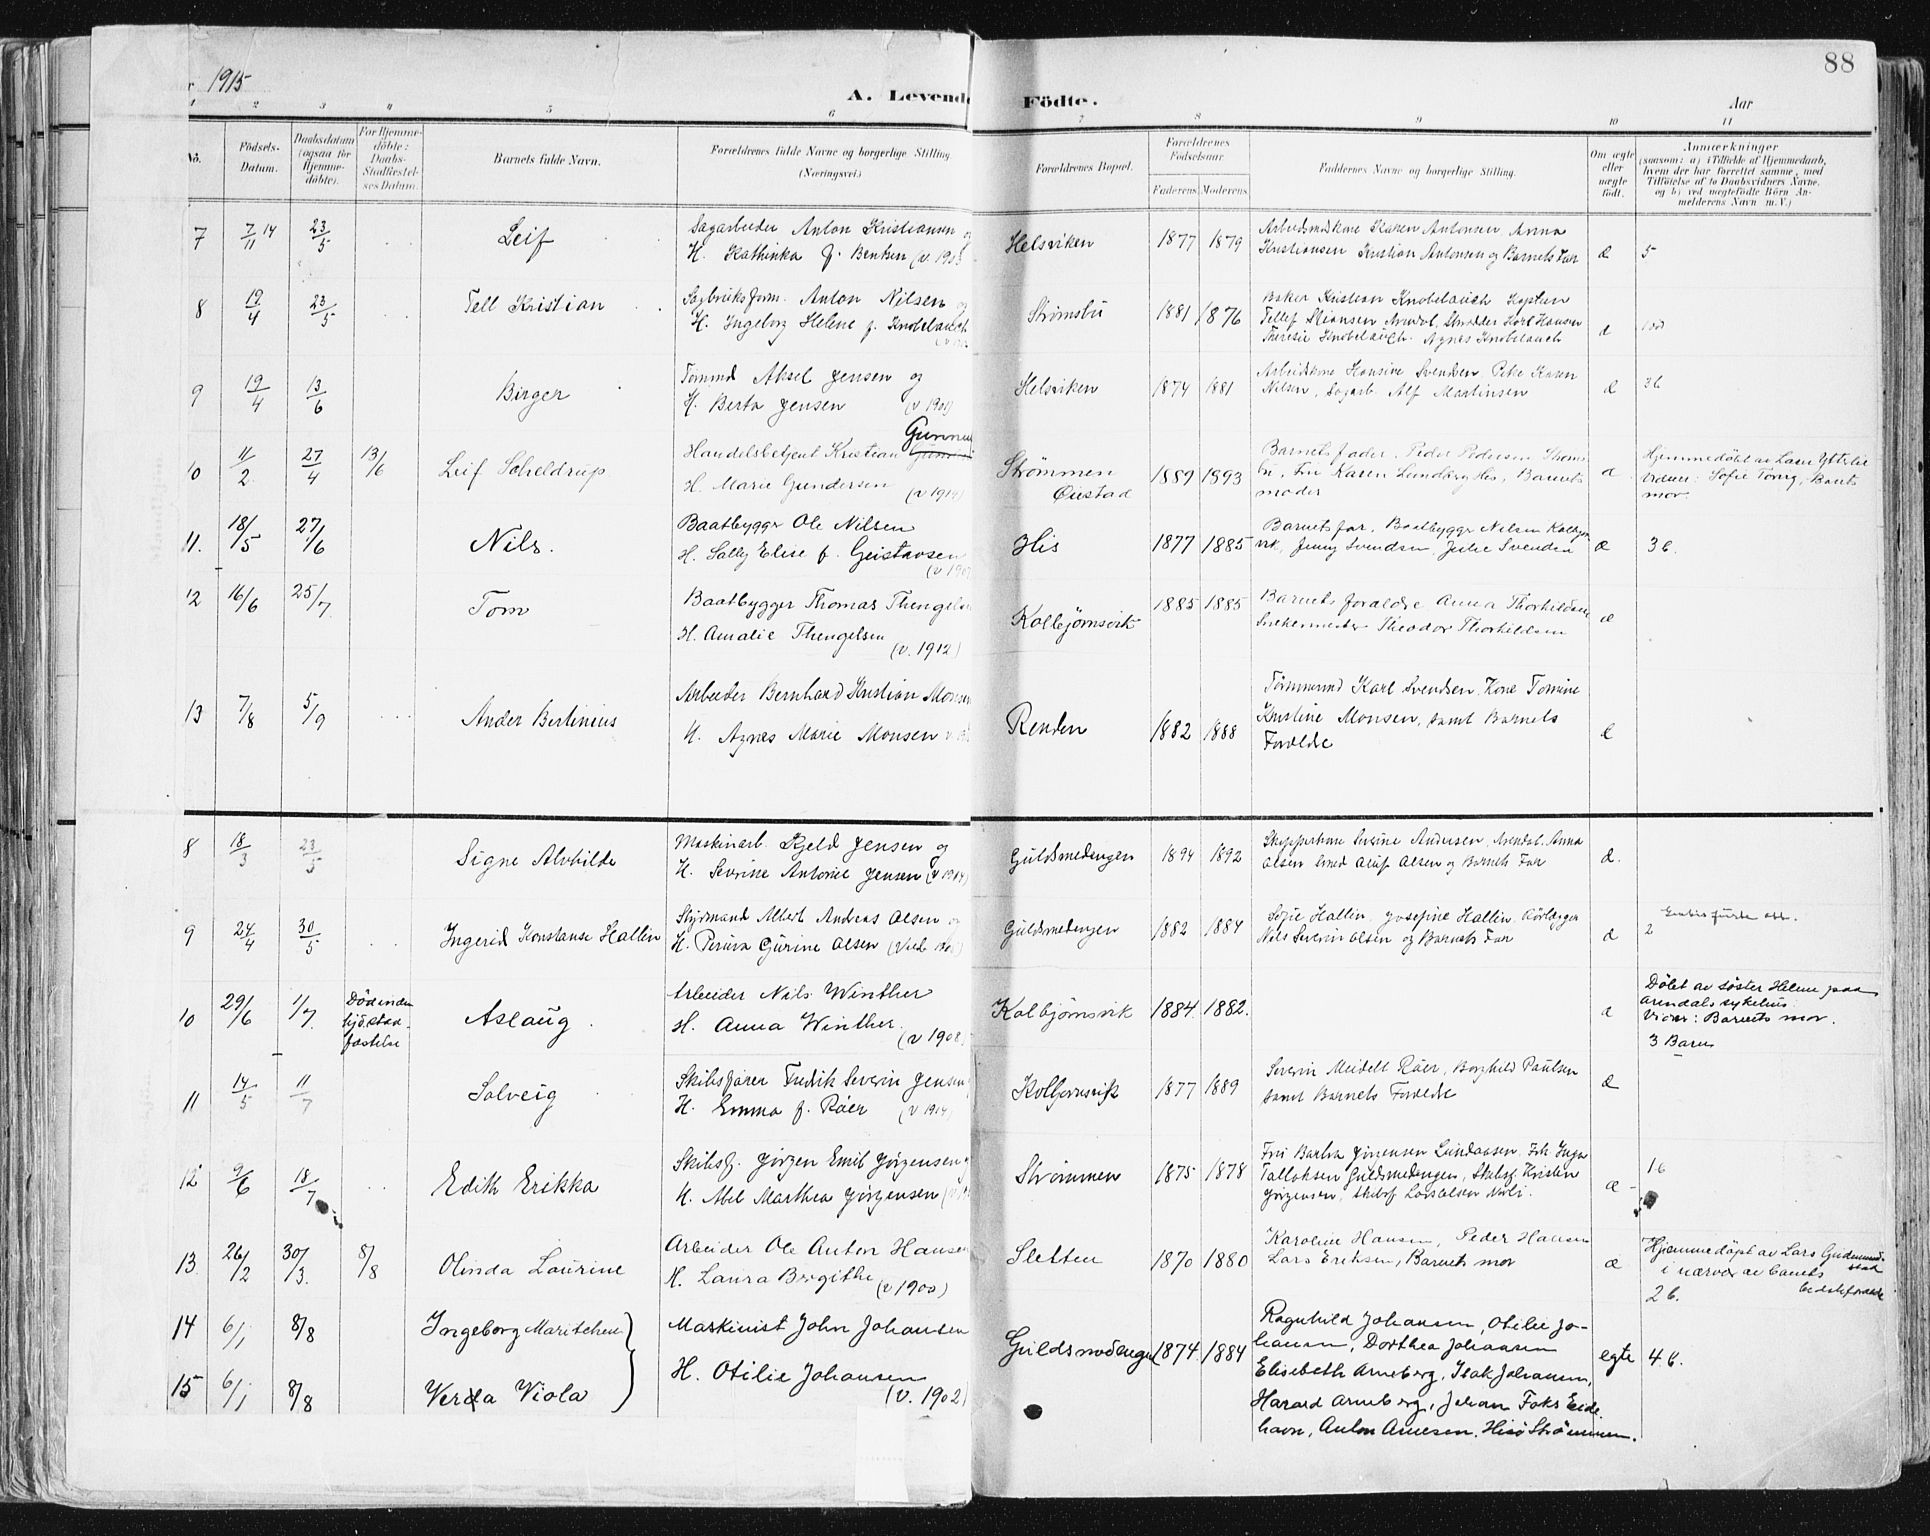 1915
88
A. Levende Födte.
Aar
1 2 3 4 5 6 7 8 9 10 11
No.
Födsels-
Datum.
Daabsdatum
(ogsaa for
Hjemme-
döbte).
For Hjemme-
döbte:
Daabs-
Stadfæstel-
ses Datum.
Barnets fulde Navn.
Forældrenes fulde Navne og borgerlige Stilling
(Næringsvei.)
Forældrenes Bopæl.
Forældrenes
Fødselsaar.
Faderens Moderens
Faddernes Navne og borgerlige Stilling.
Om ægte
eller
uægte
født.
Anmærkninger
(saasom: a) i Tilfælde af Hjemmedaab,
hvem der har forrettet samme, med
Tilföielse af to Daabsvidners Navne,
og b) ved uægtefödte Börn An-
melderens Navn m. V.)
7 7/11 14 23/5 Leif
Sagarbeider Anton Kristiansen og
H. Kathinka f. Bentsen
Helsviken 1877 1879
Arbeidsmdskone Karen Antonsen Anna
Kristiansen Kristian Antonsen og Barnets Far
æ 5
8 19/4 23/5 Tell Kristian
Sagbruksform. Anton Nilsen og
H. Ingeborg Helene f. Knobelauch
Strømsbu 1881 1876
Baker Kristian Knobelauch Kaptein
Tellef Arendal, Skrædder Karl Hansen
Therese Knobelauch. Agnes Knobelauch
æ
9 19/4 13/6 Birger
Tømmd Aksel Jensen og
H. Berta Jensen (v 1901)
Helsviken 1874 1881
Arbeidskone Hansine Svendsen Pike Karen
Nilsen, Sagarb. Alf Martinsen
æ 36
10 11/2 27/4 13/6 Leif Scheldrup
Handelsbetjent Kristian
H. Marie Gundersen (v 1914)
Strömmen
Øiestad
1889 1893
Barnets fader. Peder Pedersen Strøms-
bu, Fru Karen Lundberg His, Barnets
moder
æ
Hjemmedøbt av
vidner: Sofie Barnets
mor.
11. 18/5 27/6 Nils.
Baatbygger Ole Nilsen
H. Sally Elise f. Geistavsen
His 1877 1885
Barnets far, Baatbygger Nilsen Kolbjørns
vik, Jenny Svendsen, Julie Svendsen
æ 36.
12 16/6 25/7 Tom
Baatbygger Thomas Thengelsen
H. Amalie Thengelsen
(v. 1912)
Kolbjørnsvik 1885 1885
Barnets foraldre Anna Thorkildsen
Snekermester Theodor Thorkildsen
æ
13 7/8 5/9 Ander Bertinius
Arbeider Bernhard Kristian Monsen
H. Agnes Marie Monsen
Renden 1882 1888
Tømmermd Karl Svendsen, Kone Tomine
Kristine Monsen, samt Barnets
Forældre
8 18/3 23/5 Signe Alvhilde
Maskinarb. Kjeld Jensen og
H. Severine Antonie Jensen (v 1914)
Guldsmedengen 1894 1892
Skipperkone Severine Andersen, Arendal. Anna
Olsen Smed Oluf Olsen og Barnets Far
æ.
9 24/4 30/5 Ingerid Konstanse Hallin
Styrmand Albert Andreas Olsen og
H. Gurine Olsen
Guldsmedengen 1882 1884
Sofie Hallin, Josefine Hallin,
Nils Severin Olsen og Barnets Far
æ 2
10 29/6 1/7
Død inden
fæstelse
Aslaug.
Arbeider Nils Winther
H. Anna Winther.
(v 1908)
Kolbjørnsvik 1884. 1882.
æ
Døbt av søster Helene paa
Arendals sykehus:
Vidner: Barnets mor.
3 Barn
11 14/5 11/7 Solveig
Skibsfører Fredrik Severin Jensen
H. Emma f. Røer (v 1914)
Kolbjørnsvik 1877 1889
Severin Meidell Røer, Borghild Paulsen
samt Barnets Forældre
æ
12 9/6 18/7 Edith Erikka
Skibsf. Jørgen Emil Jørgensen
H. Abel Marthea Jørgensen
Strømmen 1875 1878
Fru Barbra Jørgensen Lindaasen, Frk Inga
Tallaksen Guldsmedengen, Skibsf. Kristen
Jørgensen, Skibsf Lars Olsen
æ 16
13. 26/2 30/3. 8/8 Olinda Laurine
Arbeider Ole Anton Hansen
H. Laura Birgithe (v 1900)
Sletten 1870 1880
Karoline Hansen, Peder Hansen
Lars Eriksen, Barnets mor
æ
Hjemmedøpt av Lars
i nærvær av barnets
bedsteforældre
2 b.
14 6/1 8/8 Ingeborg Maritchen
Maskinist John Johansen
15 6/1 8/8 Verda Viola
H. Otilie Johansen
(v. 1902)
Guldsmedengen 1874 1884
Ragnhild Johansen, Otilie Jo-
hansen, Dorthea Johansen
Elisebeth Arneberg, Isak Johansen,
Harald Arneberg, Johan Foks Eide
havn, Anton Arnesen. Hisø Strømmen.
egte 4 b.